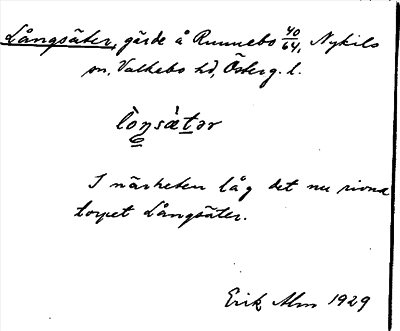 Långsäter, gärde å Runnebo 40/64, Nykils
sn, Valkebo hd, Österg. l.
lòŋsä̀tər
I närheten låg det nu rivna
torpet Långsäter.
Erik Alm 1929